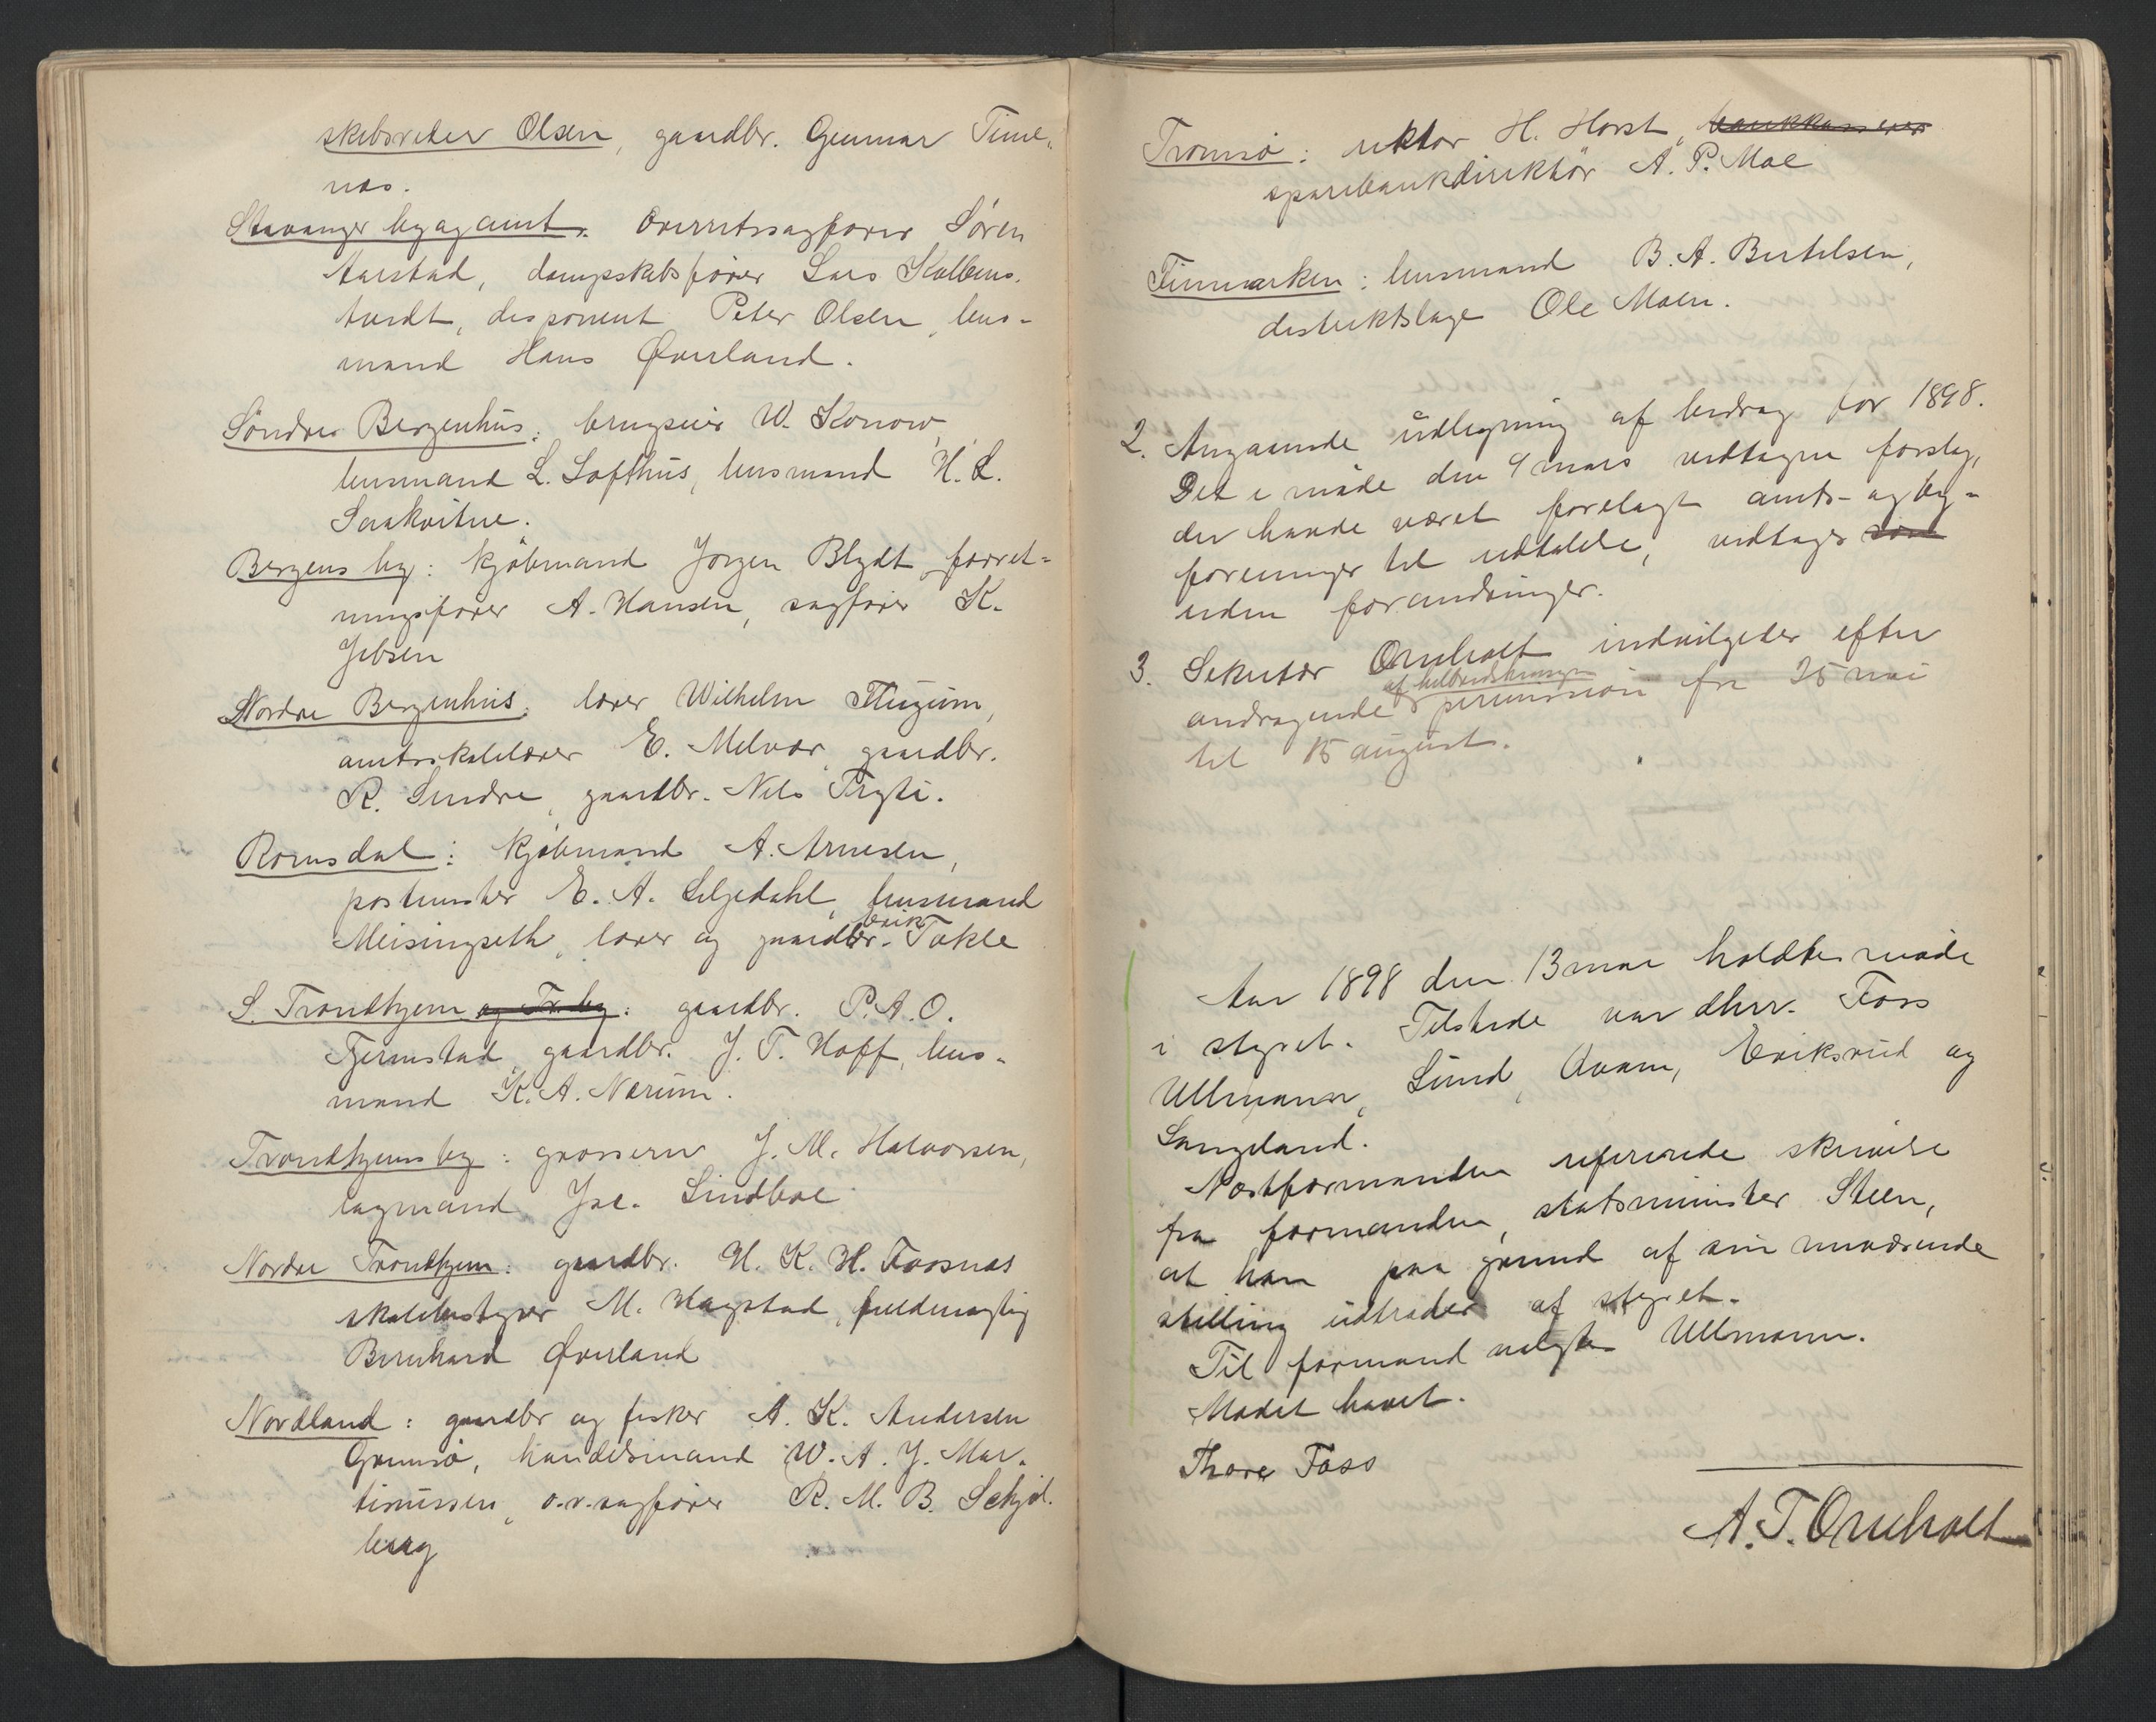 skibsreder Olsen, gaardbr. Gunnar Time-
næs.
Stavanger by og amt. Overretssagfører Søren
Aarstad, dampskibsfører Lars Kolbens-
tvedt, disponent Peter Olsen, lens-
mand Hans Øverland.
Söndre Bergenhus: brugseier W. Konow,
lensmand L. Lofthus, lensmand H. L.
Saakvitne.
Bergens by: kjøbmand Jørgen Blydt, forret-
ningsfører A. Hansen, sagfører K.
Jebsen
Nordre Bergenhus: lærer Wilhelm
amtsskolelærer E. Melvær, gaardbr.
R. Sindre, gaardbr. Nils
Romsdal: kjøbmand A. Arnesen,
postmester E. A. Liljedahl, lensmand
Meisingseth, lærer og gaardbr. Erik Takle
S. Trondhjem og Tr. by: gaardbr. P. A. O.
Fjermstad, gaardbr. J. T. Hoff, lens-
mand K. A. Nærum.
Trondhjems by: grosserer J. M. Halvorsen,
lagmand Jac. Lindboe
Nordre Trondhjem: gaardbr. H. K. H. Foosnæs
skolebestyrer M. Hagstad, fuldmægtig
Bernhard Øverland
Nordland: gaardbr og fisker A. K. Andersen
Grimsø, handelsmand W. A. J. Mar-
tinussen, o.r.sagfører R. M. B. Schjøl-
berg
Tromsø: rektor H. Horst, bankkasserer
sparebankdirektör A. P. Moe
Finmarken: lensmand B. A. Bertelsen,
distriktslæge Ole Moen.
2. Angaaende udligning af bidrag for 1898.
Det i møde den 9 mars vedtagne forslag,
der havde været forelagt amts- og by-
foreninger til udtalelse, vedtages som
uden forandringer.
3. Sekretær Omholt indvilgedes efter
af helbredshensyn
andragende permission fra 25 mai
til 15 august.
Aar 1898 den 13 mai holdtes møde
i styret. Tilstede var dhrr. Foss
Ullmann, Lund, Qvam, Eriksrud og
Langeland.
Næstformanden refererede skrivelse
fra formanden, statsminister Steen,
at han paa grund af sin nuværende
stilling udtræder af styret.
Til formand valgtes Ullmann.
Mødet hævet.
Thore Foss
A. T. Omholt